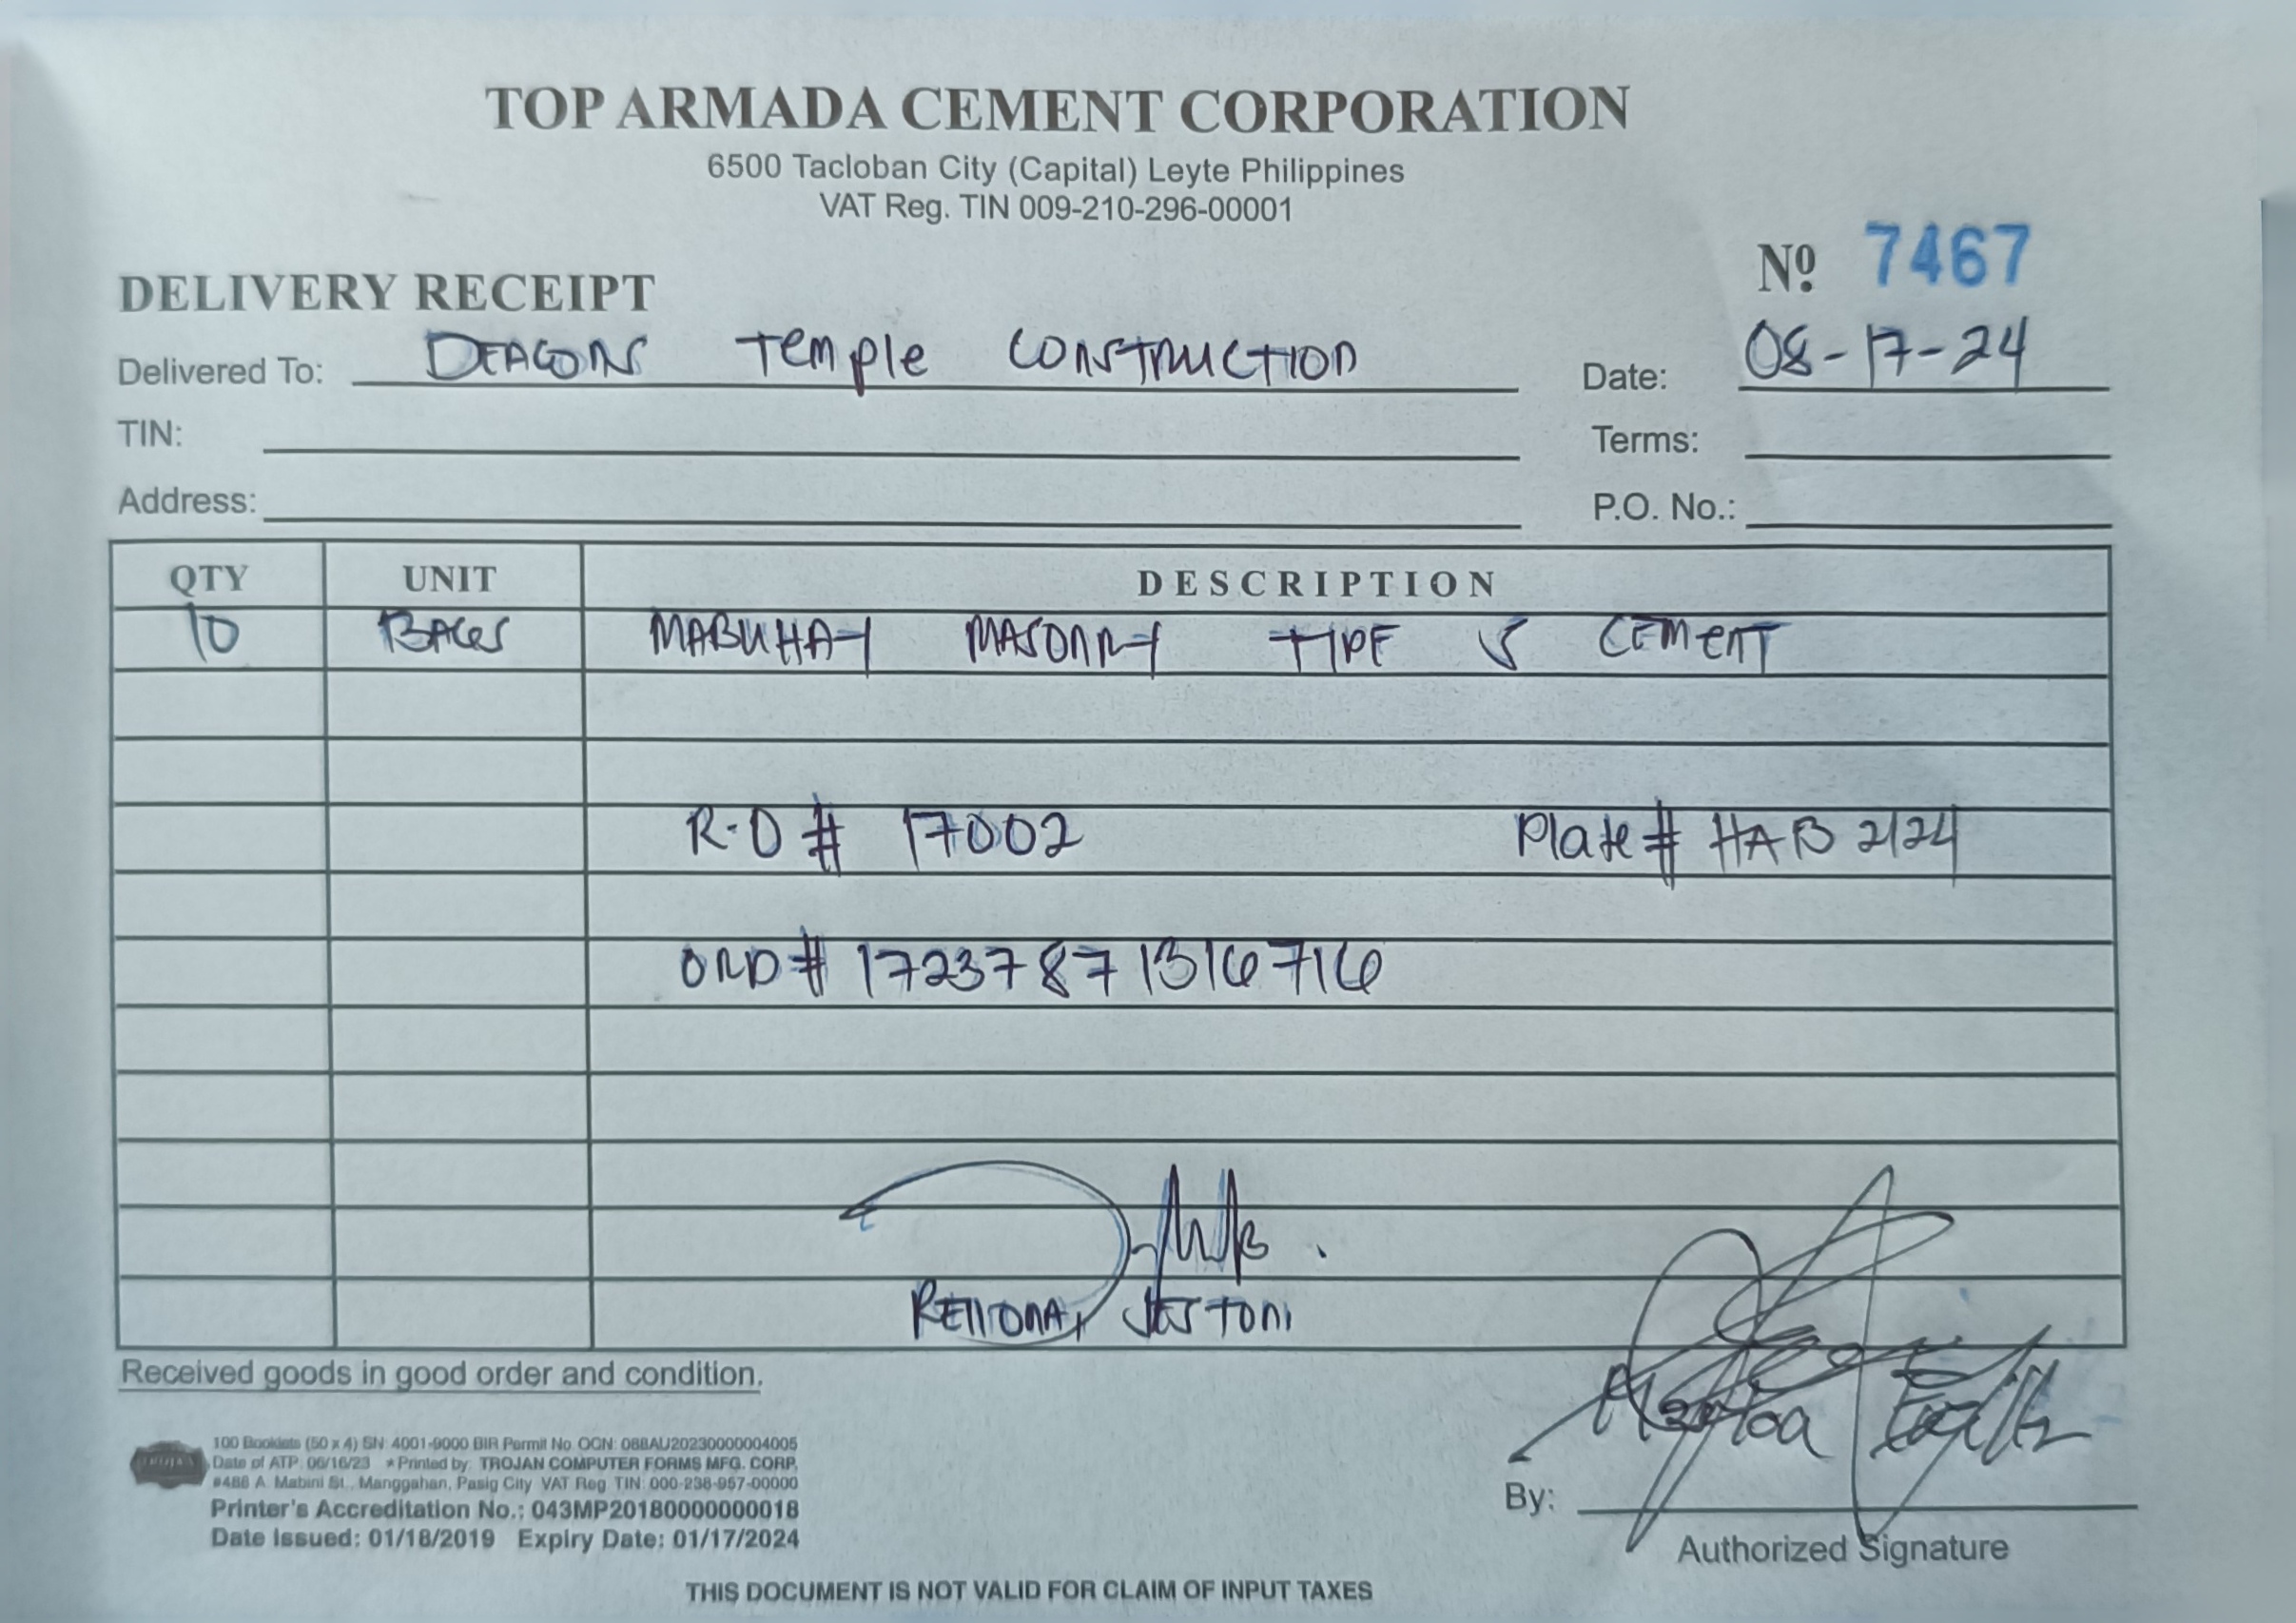 TOP ARMADA CEMENT CORPORATION
6500 Tacloban City (Capital) Leyte Philippines
VAT Reg. TIN 009-210-296-00001
Nº 7467
DELIVERY RECEIPT
Delivered To: DEACONS TEMPLE CONSTRUCTION Date: 08-17-24
TIN: Terms:
Address: P.O. No.:
QTY UNIT DESCRIPTION
10 BAGS MABUHAY MASONRY TYPE S CEMENT
R.O # 17002 Plate # HAB 2124
ORD # 17237871316716
JESTONI
Received goods in good order and condition.
100 Booklets (50 x 4) SN: 4001-9000 BIR Permit No. OCN: 088AU20230000004005
Date of ATP: 06/16/23 * Printed by: TROJAN COMPUTER FORMS MFG. CORP.
#486 A. Mabini St., Manggahan, Pasig City VAT Reg. TIN: 000-238-957-00000
Printer's Accreditation No.: 043MP20180000000018
Date issued: 01/18/2019 Expiry Date: 01/17/2024
By:
Authorized Signature
THIS DOCUMENT IS NOT VALID FOR CLAIM OF INPUT TAXES